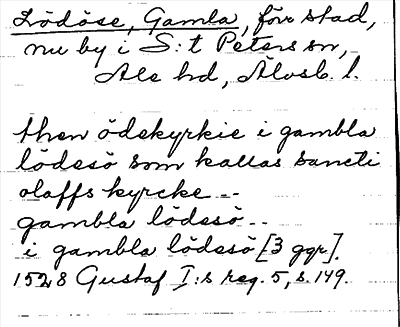 Lödöse, Gamla, förr stad,
nu by i S:t Peters sn,
Ale hd, Älvsb. l.
then ödekyrkie i gambla
lödesö som kallas sancti
olaffs kyrcke --
gambla lödesö --
i gambla lödesö [3 ggr].
1528 Gustaf I:s reg. 5, s. 149.